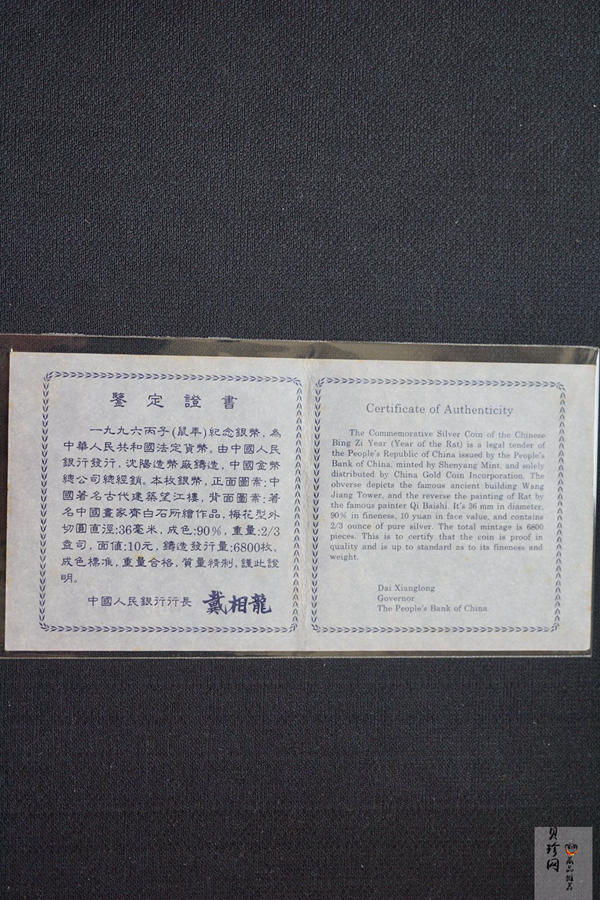 鑒定證書
一九九六丙子(鼠年)紀念銀幣，為
中華人民共和國法定貨幣，由中國人民
銀行發行，沈陽造幣廠鑄造，中國金幣
總公司總經銷。本枚銀幣，正面圖案：中
國著名古代建築望江樓，背面圖案：著
名中國畫家齊白石所繪作品，梅花型外
切圓直淫：36毫米，成色：90%，重量：2/3
盎司，面值：10元，鑄造發行量：6800枚。
成色標准，重量合格，質量精制，謹此證
明。
中國人民銀行行長 戴相龍
Certificate of Authenticity
The Commemorative Silver Coin of the Chinese
Bing Zi Year (Year of the Rat) is a legal tender of
the People's Republic of China issued by the People's
Bank of China, minted by Shenyang Mint, and solely
distributed by China Gold Coin Incorporation. The
obverse depicts the famous ancient building Wang
Jiang Tower, and the reverse the painting of Rat by
the famous painter Qi Baishi. It's 36 mm in diameter,
90% in fineness, 10 yuan in face value, and contains
2/3 ounce of pure silver. The total mintage is 6800
pieces. This is to certify that the coin is proof in
quality and is up to standard as to its fineness and
weight.
Dai Xianglong
Governor
The People's Bank of China
贝珍网
藏品推荐